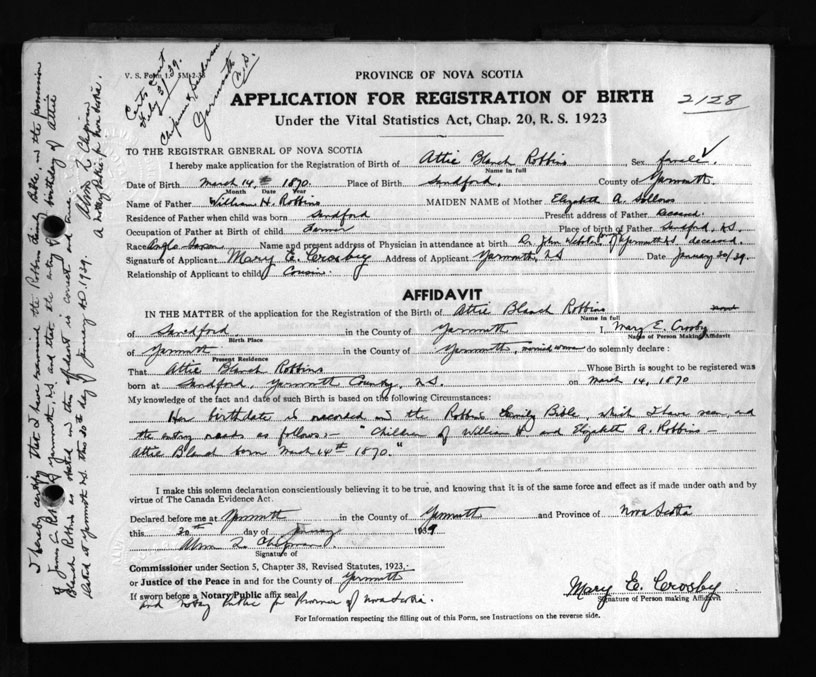 V. S. Form 1. 5M-2-38
Certs sent
Feby 3/39.
Yarmouth
N.S.
PROVINCE OF NOVA SCOTIA
APPLICATION FOR REGISTRATION OF BIRTH
2128
Under the Vital Statistics Act, Chap. 20, R. S. 1923
TO THE REGISTRAR GENERAL OF NOVA SCOTIA
I hereby make application for the Registration of Birth of Attie Blanch Robbins Sex female
Name in full
Date of Birth March 14, 1870. Place of Birth Sandford, County of Yarmouth.
Month Date Year
Name of Father William H. Robbins MAIDEN NAME of Mother Elizabeth A. Sollows
Residence of Father when child was born Sandford Present address of Father deceased.
Occupation of Father at Birth of child. Farmer Place of birth of Father Sandford, N.S.
Race Anglo-Saxon Name and present address of Physician in attendance at birth Dr. John Webster of Yarmouth N.S. deceased.
Signature of Applicant Mary E. Crosby Address of Applicant Yarmouth, N.S. Date January 20/39.
Relationship of Applicant to child Cousin.
AFFIDAVIT
IN THE MATTER of the application for the Registration of Birth of Attie Blanch Robbins
Name in full
of Sandford in the County of Yarmouth I, Mary E. Crosby
Birth Place Name of Person Making Affidavit
of Yarmouth in the County of Yarmouth, married woman do solemnly declare :
Present Residence
That Attie Blanch Robbins Whose Birth is sought to be registered was
born at Sandford, Yarmouth County, N.S. on March 14, 1870
My knowledge of the fact and date of such Birth is based on the following Circumstances:
Her birthdate is recorded in the Robbins Family Bible, which I have seen, and
the entry reads as follows:- "Children of William H. and Elizabeth A. Robbins -
Attie Blanch born March 14th 1870."
I make this solemn declaration conscientiously believing it to be true, and knowing that it is of the same force and effect as if made under oath and by
virtue of The Canada Evidence Act.
Declared before me at Yarmouth in the County of Yarmouth and Province of Nova Scotia
this 20th day of January 1939
Signature of
Commissioner under Section 5, Chapter 38, Revised Statutes, 1923,
or Justice of the Peace in and for the County of Yarmouth
If sworn before a Notary Public affix seal
and notary public for Province of Nova Scotia.
Mary E. Crosby
Signature of Person making Affidavit
For Information respecting the filling out of this Form, see Instructions on the reverse side.
I hereby certify that I have examined the Robbins Family Bible, in the possession
of Yarmouth, N.S. and that the entry of birthday of Attie
Blanch Robbins as stated in this affidavit is correct and true.
Dated at Yarmouth N.S. this 20th day of January A.D. 1939.
A Notary Public for Nova Scotia.